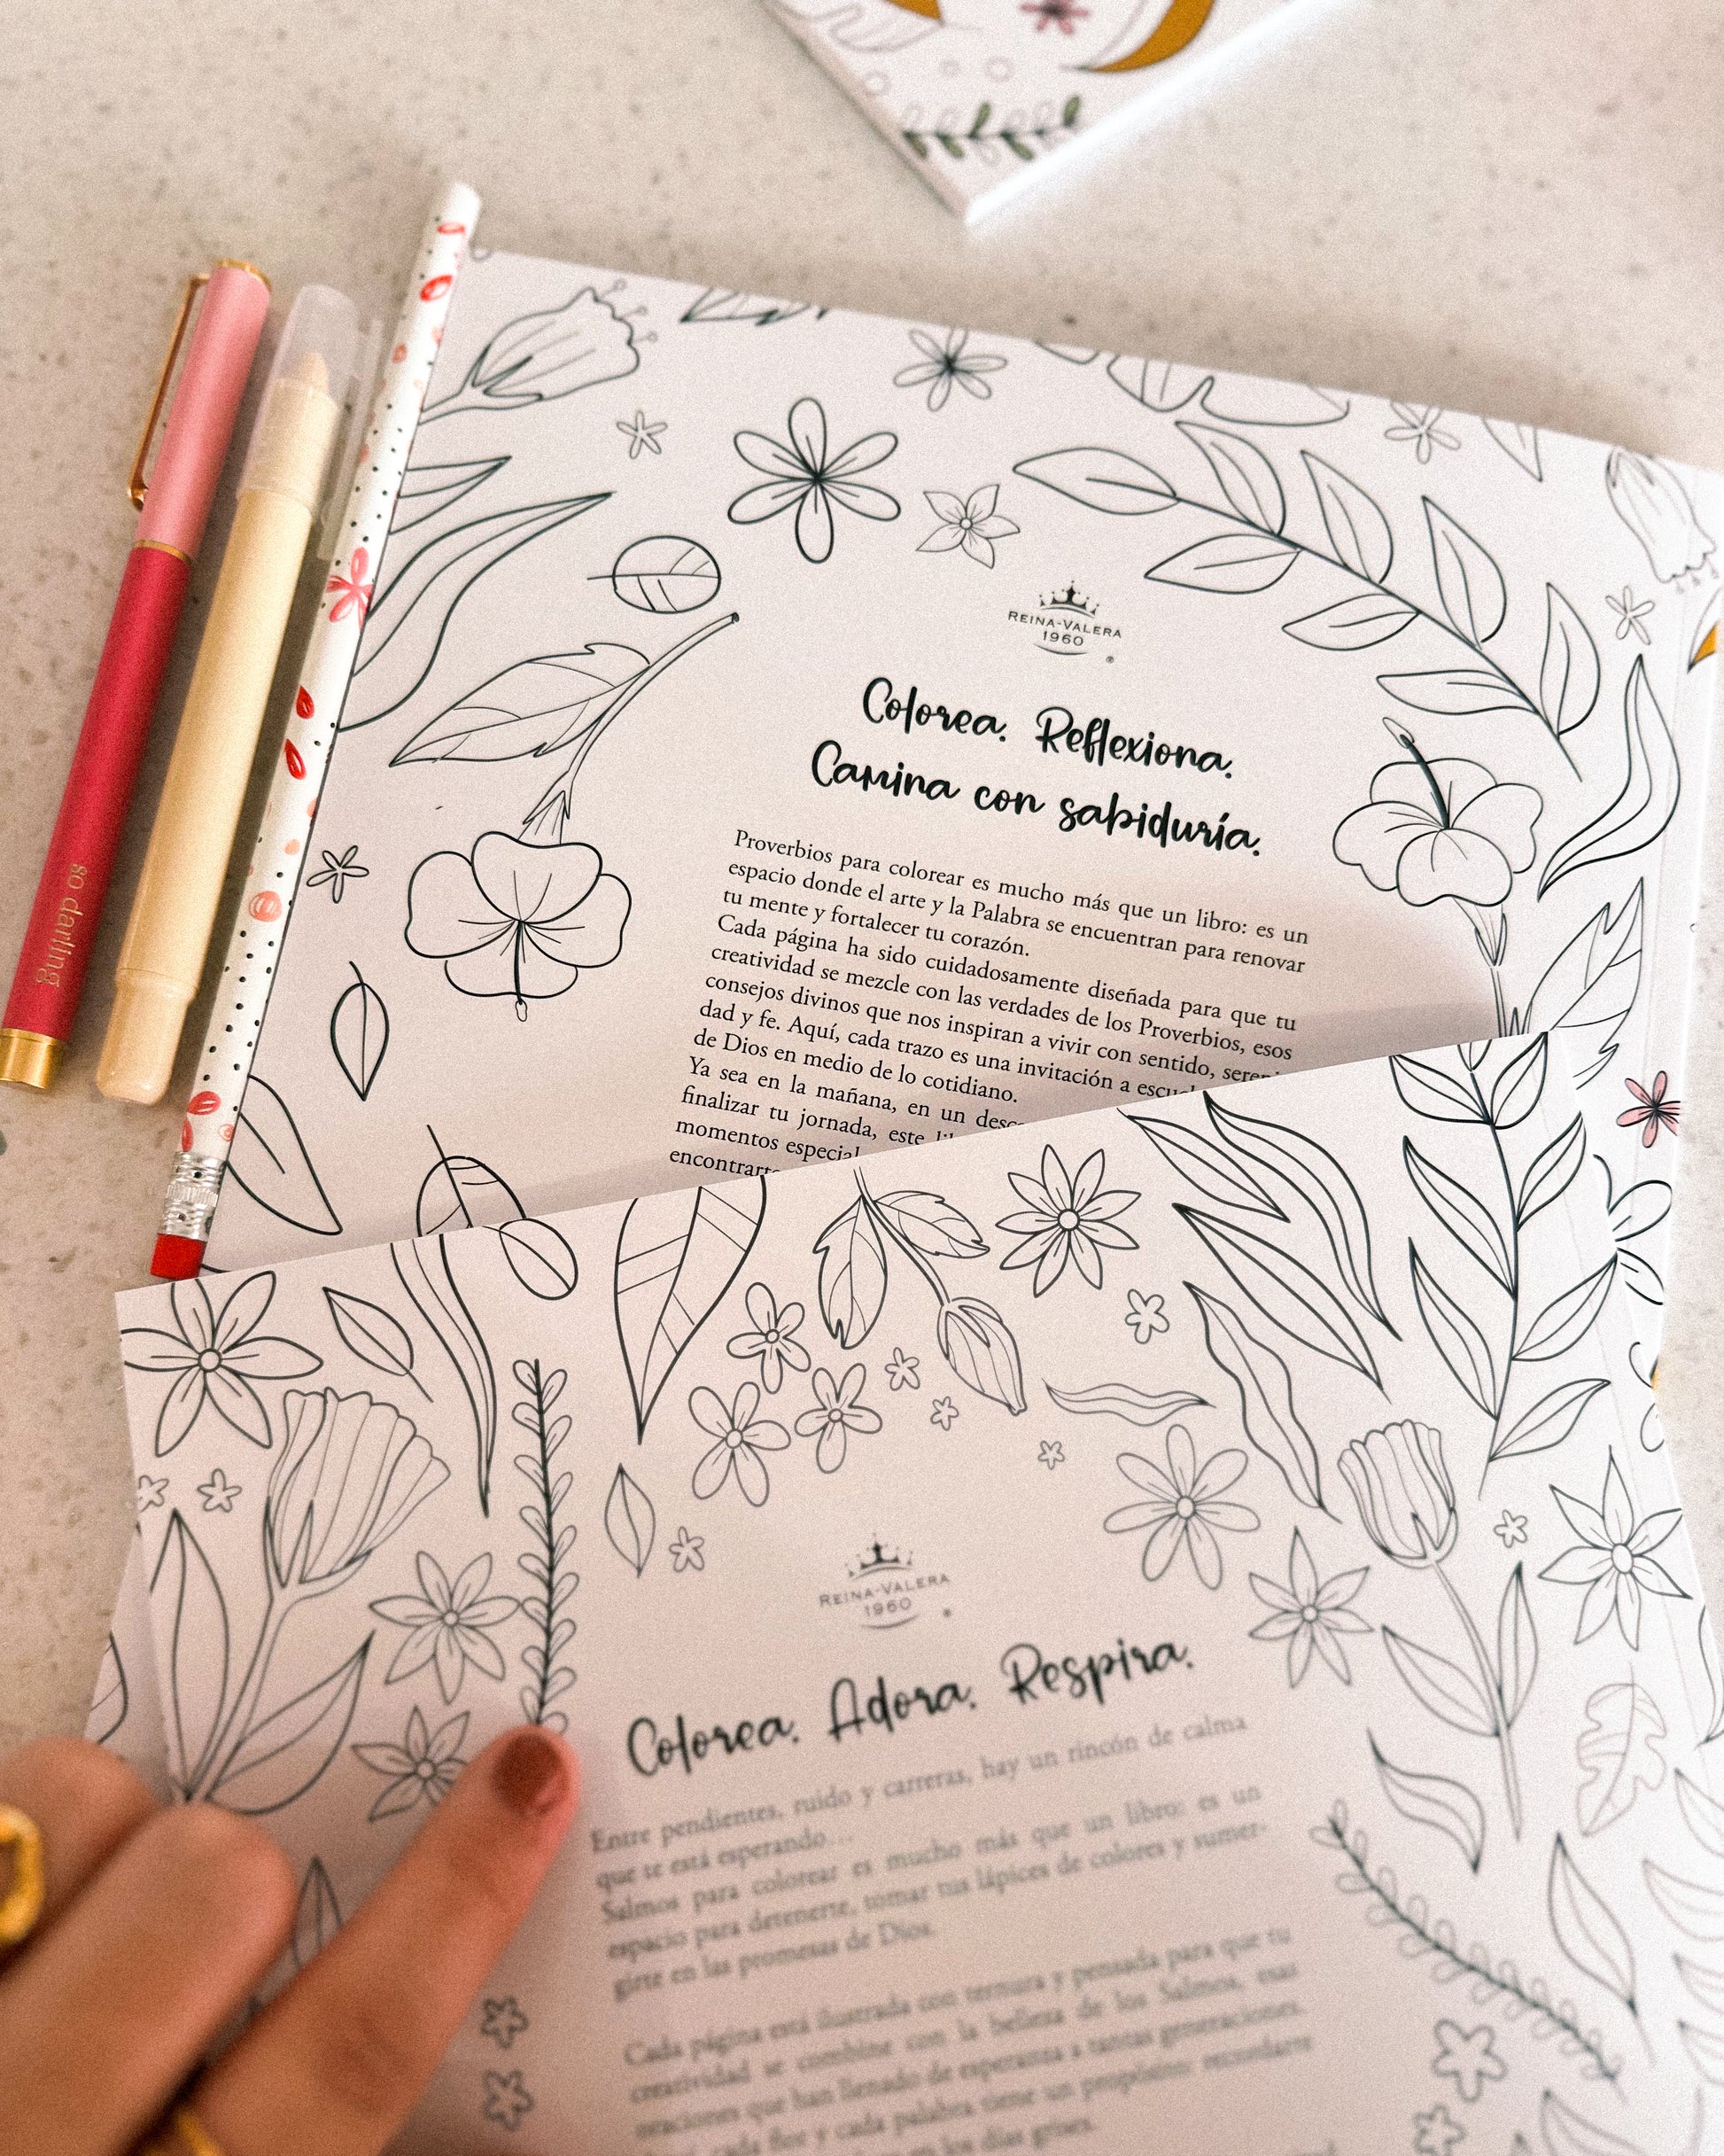 so darling
REINA-VALERA
1960
®
Colorea. Reflexiona.
Camina con sabiduría.
Proverbios para colorear es mucho más que un libro: es un
espacio donde el arte y la Palabra se encuentran para renovar
tu mente y fortalecer tu corazón.
Cada página ha sido cuidadosamente diseñada para que tu
creatividad se mezcle con las verdades de los Proverbios, esos
consejos divinos que nos inspiran a vivir con sentido, sereni-
dad y fe. Aquí, cada trazo es una invitación a
de Dios en medio de lo cotidiano.
Ya sea en la mañana, en un
finalizar tu jornada, este
momentos
REINA-VALERA
1960
®
Colorea. Adora. Respira.
Entre pendientes, ruido y carreras, hay un rincón de calma
que te está esperando...
Salmos para colorear es mucho más que un libro: es un
espacio para detenerte, tomar tus lápices de colores y sumer-
girte en las promesas de Dios.
Cada página está ilustrada con ternura y pensada para que tu
creatividad se combine con la belleza de los Salmos, esas
oraciones que han llenado de esperanza a tantas generaciones.
cada flor y cada palabra tiene un propósito: recordarte
en los días grises.